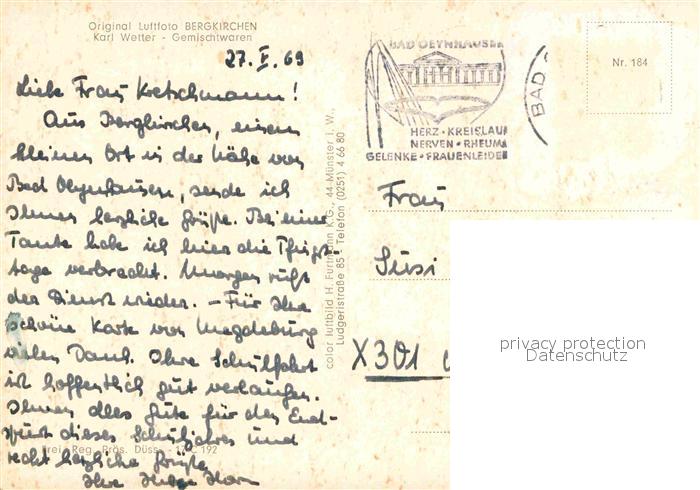 Original Luftfoto BERGKIRCHEN
Karl Wetter - Gemischtwaren
27. V. 69
Liebe Frau Kretschmann!
Aus Bergkirchen, einem
kleinen Ort in der Nähe von
Bad Oeynhausen, sende ich
Ihnen herzliche Grüße. Bei einer
Tante habe ich hier die Pfingst-
tage verbracht. Morgen ruft
der Dienst wieder. – Für Ihre
schöne Karte von Magdeburg
vielen Dank. Ihre Schulfahrt
ist hoffentlich gut verlaufen.
Ihnen alles Gute für den End-
spurt dieses Schuljahres und
recht herzliche Grüße
Ihre
Frei. Reg. Präs. Düss. 192
color luftbild H. Furtmann K.G., 44 Münster i. W.,
Ludgeristraße 85 · Telefon (0251) 4 66 80
BAD OEYNHAUSEN
HERZ · KREISLAUF
NERVEN · RHEUMA
GELENKE · FRAUENLEIDEN
BAD
Nr. 184
Frau
Susi
X301
privacy protection
Datenschutz